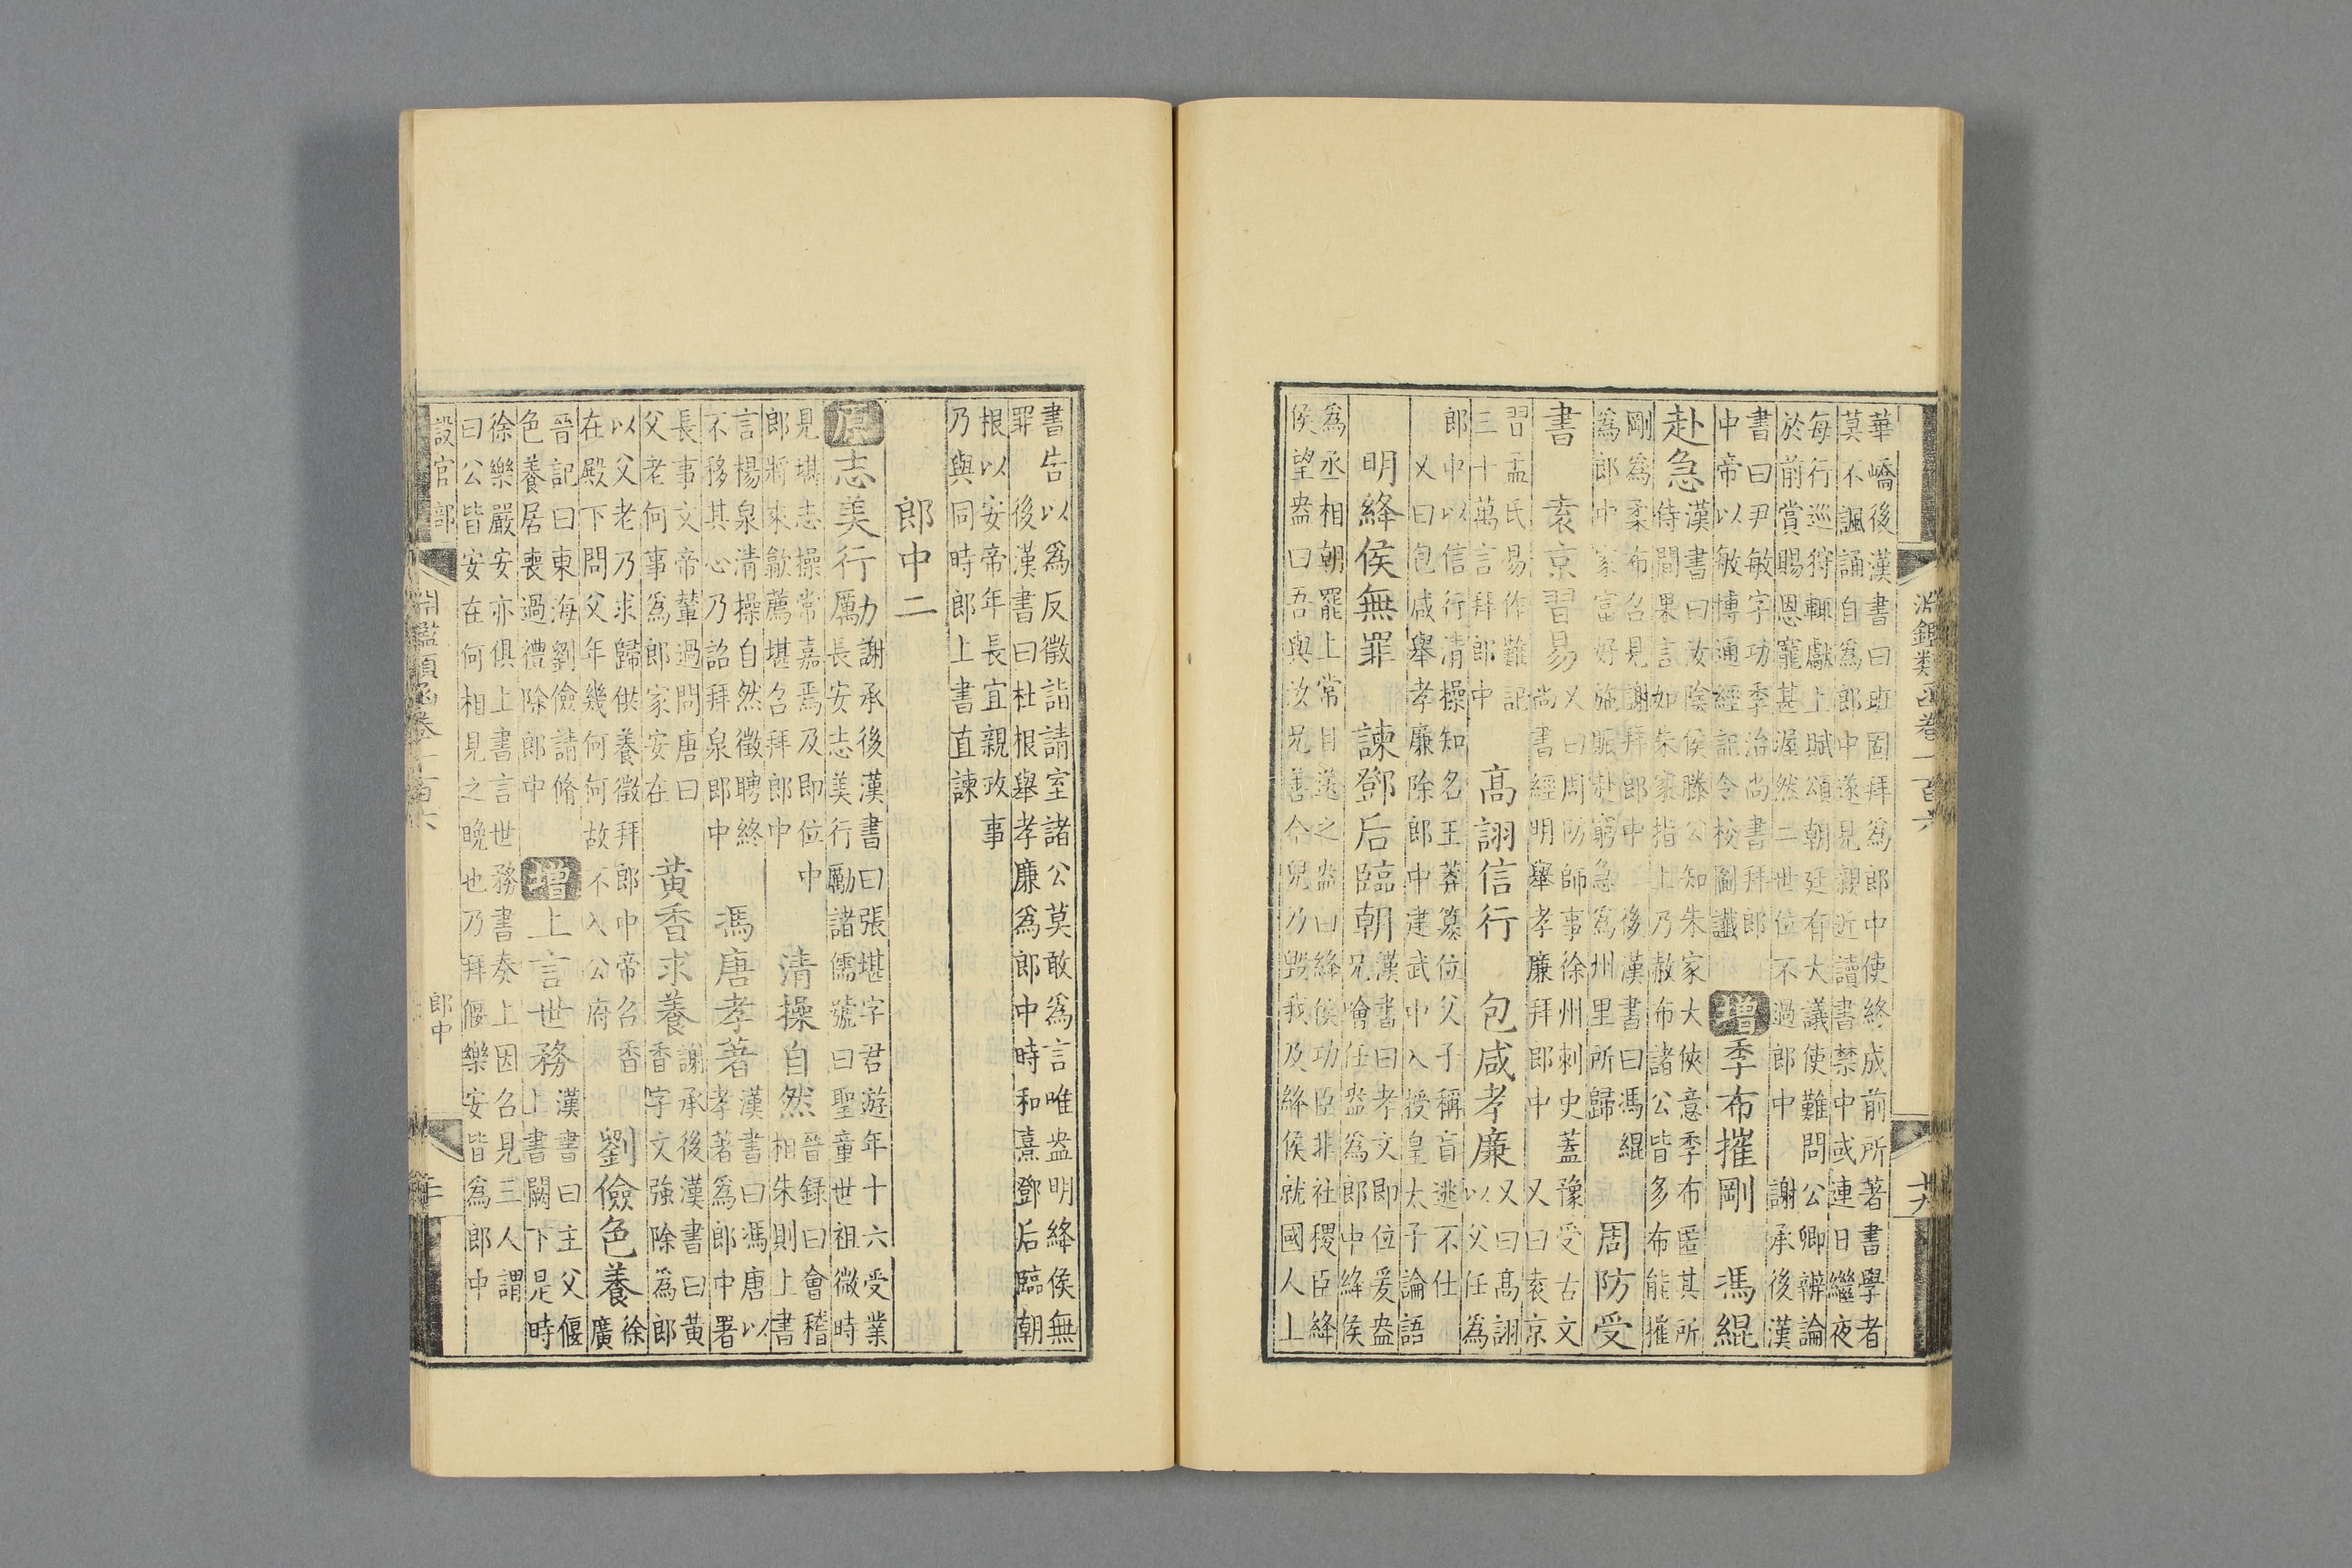 淵鑑類函卷一百六
華嶠後漢書曰班固拜為郎中使終成前所著書學者
莫不諷誦自為郎中遂見親近讀書禁中或連日繼夜
每行巡狩輒獻上賦頌朝廷有大議使難問公卿辨論
於前賞賜恩寵甚渥然二世位不過郎中 謝承後漢
書曰尹敏字功季治尚書拜郎
中帝以敏博通經記令校圖讖
增季布摧剛 馮緄
赴急
漢書曰汝陰侯滕公知朱家大俠意季布匿其所
侍間果言如朱家指上乃赦布諸公皆多布能摧
剛為柔布召見謝拜郎中 後漢書曰馮緄
為郎中家富好施賑赴窮急為州里所歸
周防受
書 袁京習易
又曰周防師事徐州刺史蓋豫受古文
尚書經明舉孝廉拜郎中 又曰袁京
習孟氏易作難記
三十萬言拜郎中
高詡信行 包咸孝廉
又曰高詡
以父任為
郎中以信行清操知名王莽篡位父子稱盲逃不仕
又曰包咸舉孝廉除郎中建武中入授皇太子論語
明絳侯無罪 諫鄧后臨朝
漢書曰孝文即位爰盎
兄噲任盎為郎中絳侯
為丞相朝罷上常目送之盎曰絳侯功臣非社稷臣絳
侯望盎曰吾與汝兄善今兒乃毀我及絳侯就國人上
書告以為反徵詣請室諸公莫敢為言唯盎明絳侯無
罪 後漢書曰杜根舉孝廉為郎中時和熹鄧后臨朝
根以安帝年長宜親政事
乃與同時郎上書直諫
郎中二
原志美行厲
謝承後漢書曰張堪字君遊年十六受業
長安志美行勵諸儒號曰聖童世祖微時
見堪志操常嘉焉及即位中
郎將來歙薦堪召拜郎中
清操自然
晉録曰會稽
相朱則上書
言楊泉清操自然徵聘終
不移其心乃詔拜泉郎中
馮唐孝著
漢書曰馮唐以
孝著為郎中署
長事文帝輦過問唐曰
父老何事為郎家安在
黃香求養
謝承後漢書曰黃
香字文強除為郎
以父老乃求歸供養徵拜郎中帝召香
在殿下問父年幾何何故不入公府
劉儉色養
徐
廣
晉記曰東海劉儉請脩
色養居喪過禮除郎中
增上言世務
漢書曰主父偃
上書闕下是時
徐樂嚴安亦俱上書言世務書奏上因召見三人謂
曰公皆安在何相見之晚也乃拜偃樂安皆為郎中
設官部
郎中